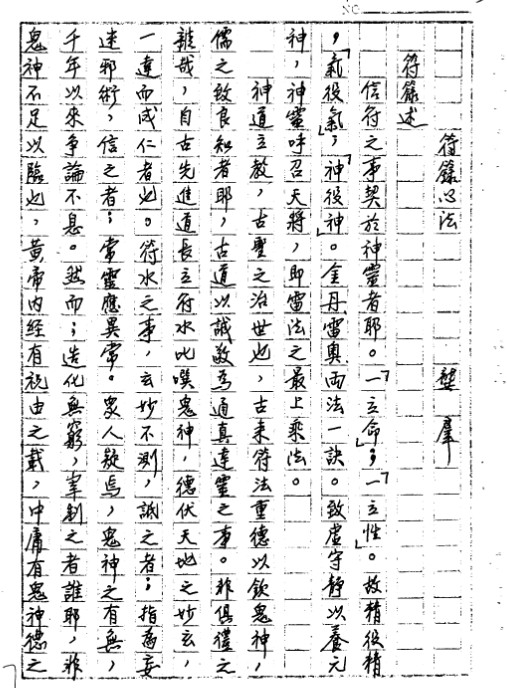 NO
符籙心法　龔羣
符籙述
信符之事契於神靈者耶。一「立命」；一「立性」。故精役精
，「氣役氣」，「神役神」。金丹雷奧兩法一訣。致虛守靜以養元
神，神靈呼召天將，即雷法之最上乘法。
神道立教，古聖之治世也，古來符法重德以欽鬼神，
儒之致良知者耶，古道以誠敬為通真達靈之事。非俱禮之
雜哉，自古先進道長立符水叱喚鬼神，德伏天地之妙玄，
一達而成仁者也。符水之事，玄妙不測，詆之者；指為妄
迷邪術，信之者；常靈應異常。眾人疑焉，鬼神之有無，
千年以來爭論不息。然而；造化無窮，宰制之者誰耶，非
鬼神不足以臨也，黃帝內經有祝由之載，中庸有鬼神德之